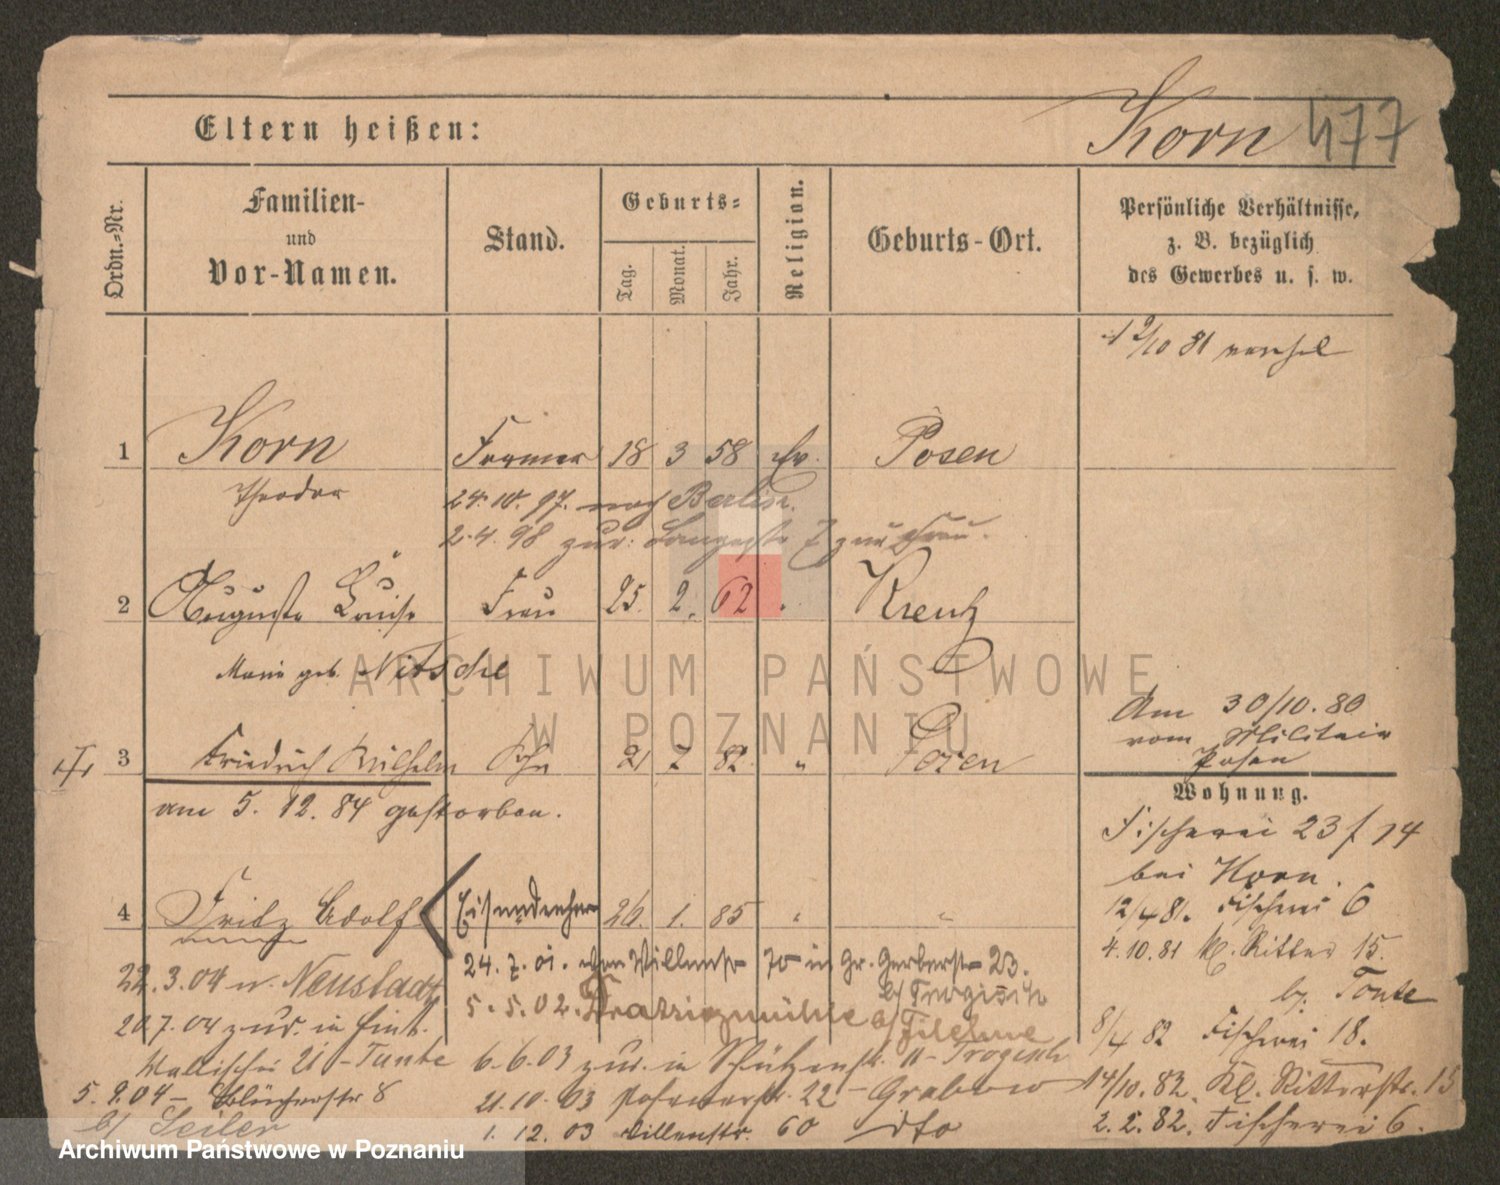 Eltern heißen:
Korn 477
Ordn.=Nr.
Familien-
und
Vor-Namen.
Stand.
Geburts=
Tag.
Monat.
Jahr.
Religion.
Geburts-Ort.
Persönliche Verhältnisse,
z. B. bezüglich
des Gewerbes u. s. w.
/10 81
1 Korn Former 18 3 58 Ev. Posen
Theodor
24. 10. 97. nach Berlin.
2. 4. 98 zur: 7 zur Frau.
2 Auguste Louise Frau 25. 2. 62 Kreutz
Marie geb. Nitschel
3 Friedrich Wilhelm Sohn 21 7 82 " Posen
am 5. 12. 84 gestorben.
Am 30/10. 80
vom Militair
Posen
Wohnung.
Fischerei 23 f 14
bei Horn.
12/4 81. Fischerei 6
4. 10. 81 Kl. Ritter 15.
by. Tonte
8/4 82 Fischerei 18.
14/10. 82. Kl. Ritterstr. 15
2. 2. 82. Fischerei 6.
4 Fritz Adolf Eisendreher 26. 1. 85 "
24. 7. 01. von 70 in Gr. Gerberstr 23.
b/ Trogisch
5. 5. 02. Dratzigmühle b/ Filehne
6. 6. 03 zur. in Schützenstr. 11 - Trogisch
21. 10. 03 22 - Grabow
1. 12. 03 60 dto
22. 3. 04 n. Neustadt
20. 7. 04 zur. in hint.
Wallischei 21 - Tante
5. 9. 04 - Blücherstr 8
b/ Seiler
ARCHIWUM PAŃSTWOWE
W POZNANIU
Archiwum Państwowe w Poznaniu